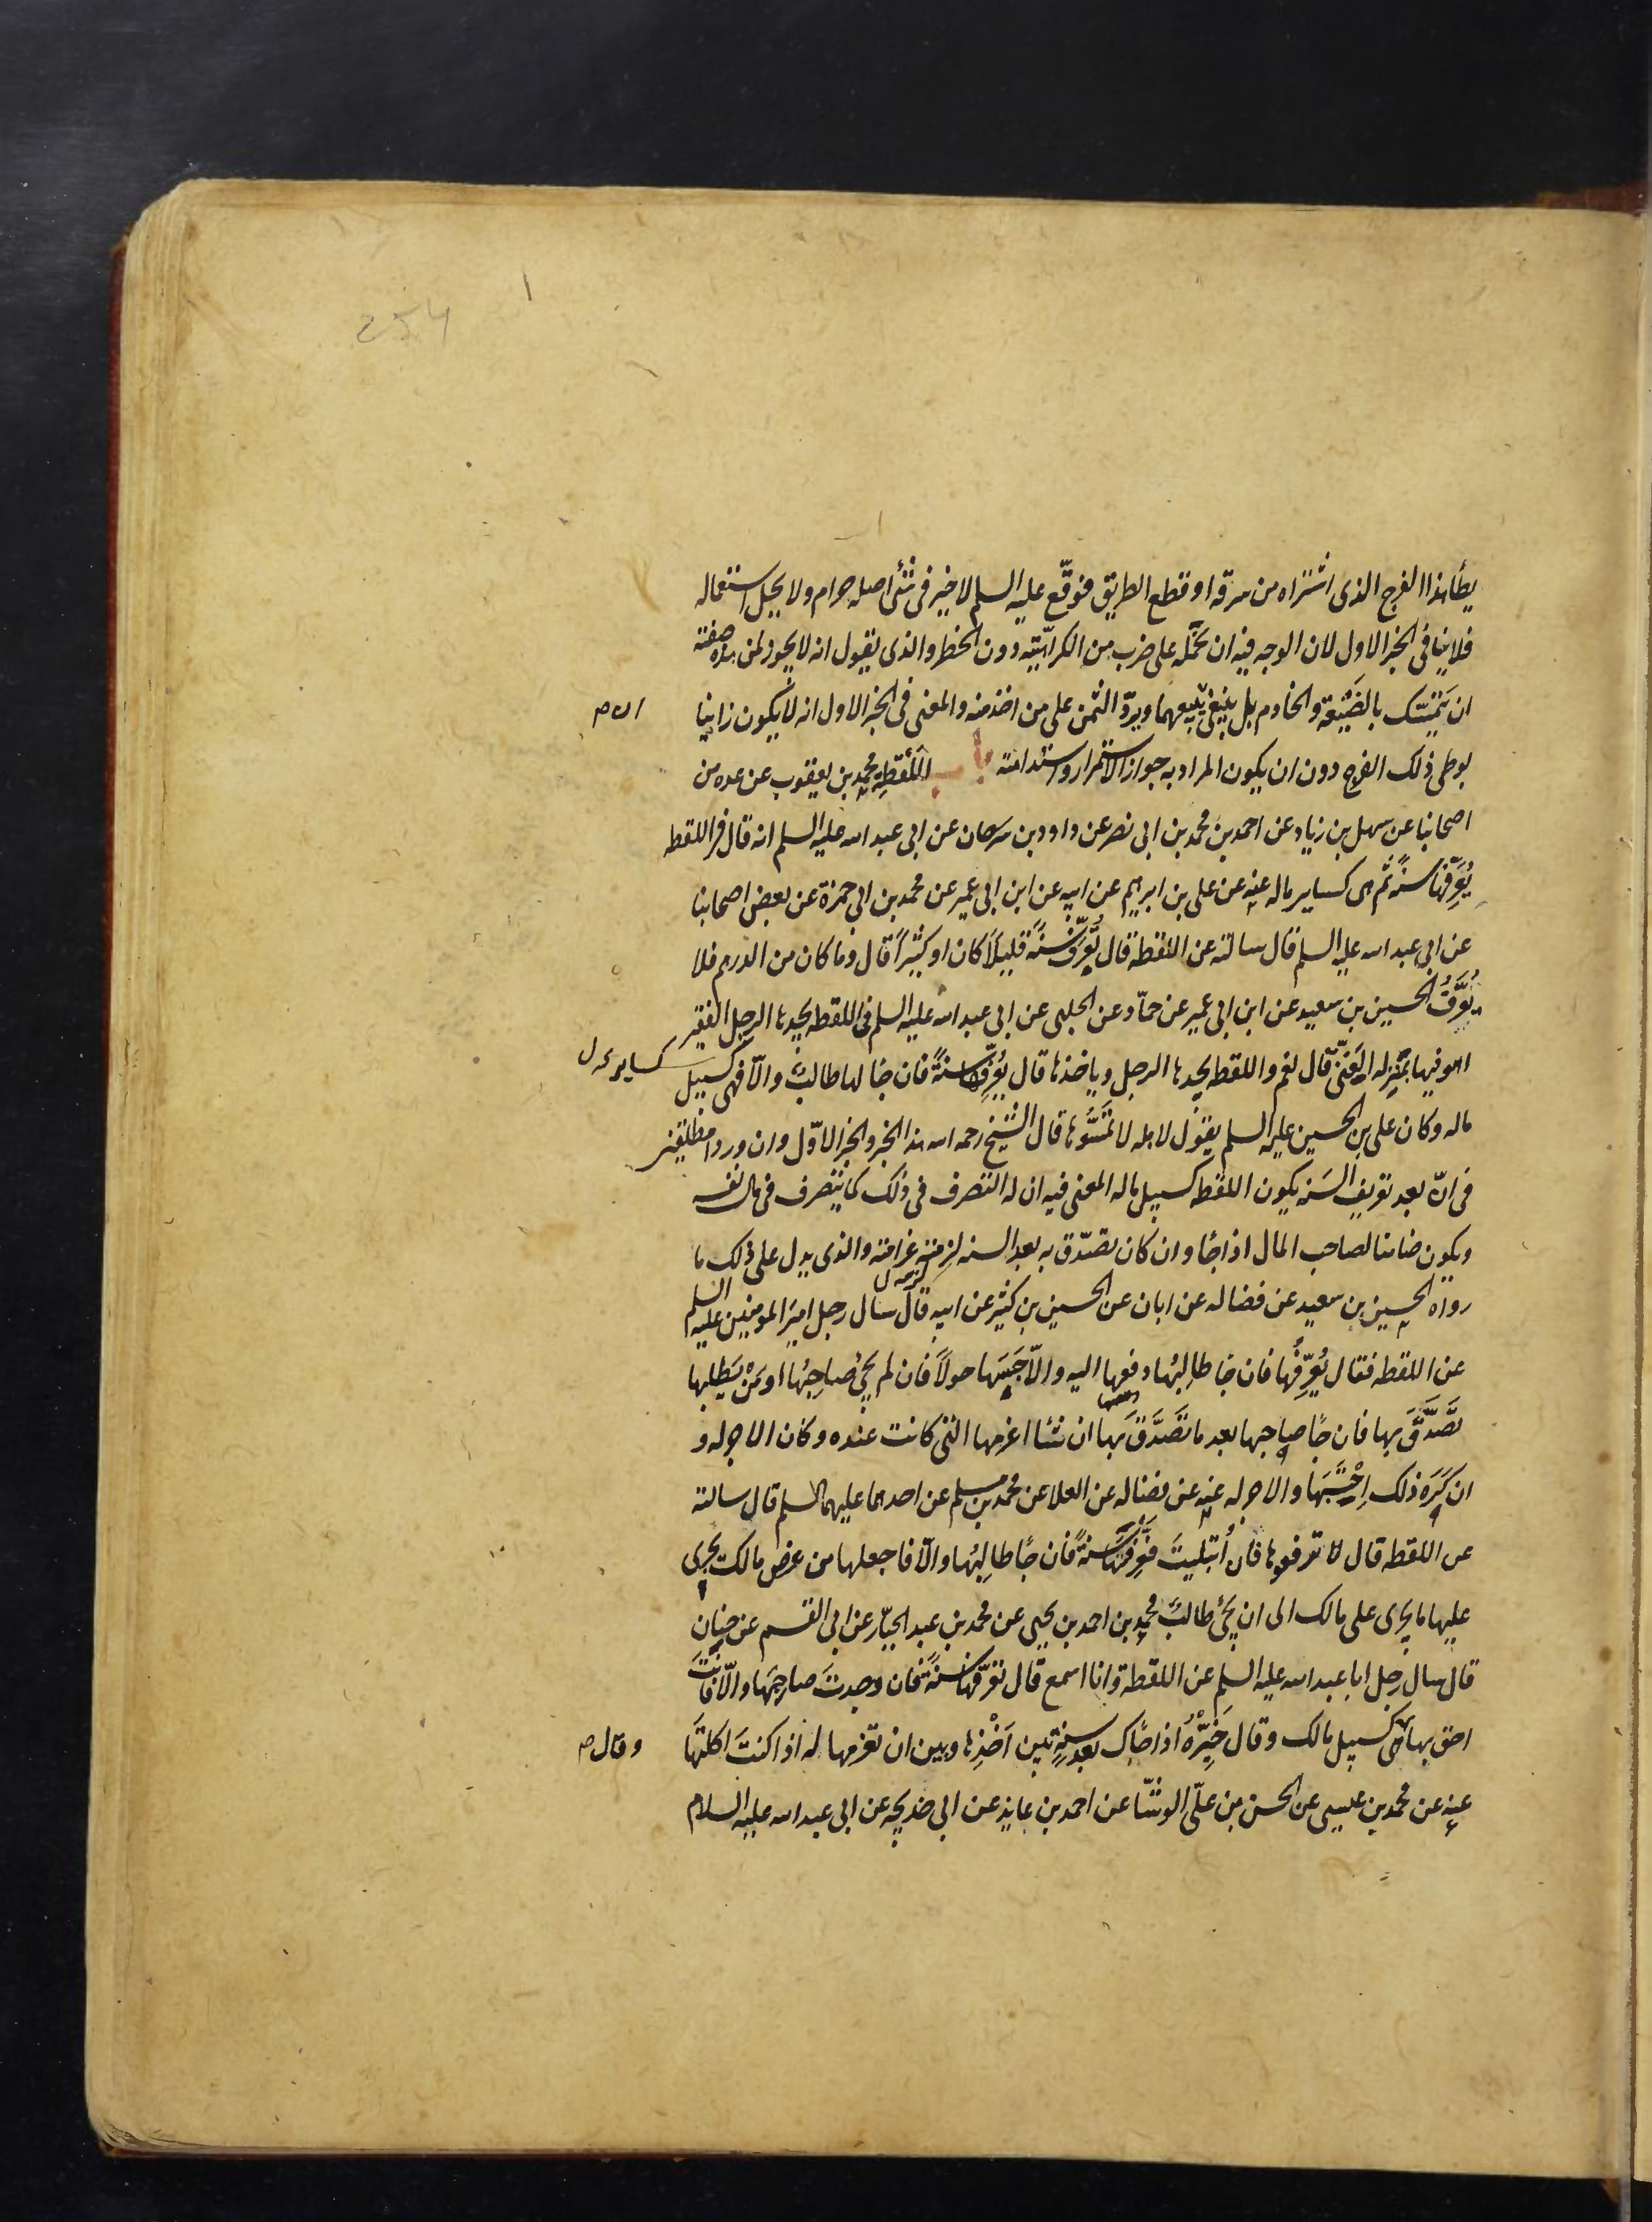 يطأ هذا الفرج الذى اشتراه من سرقه او قطع الطريق فوقّع عليه السلم لا خير فى شئ اصله حرام ولا يحل استعماله
فلا ينافى الخبر الاول لان الوجه فيه ان نحمله على ضرب من الكراهيّته دون الحظر والذى يقول انه لا يجوز لمن هذه صفته
ان يتمسّك بالضَيْعَة والخادم بل ينبغى بيعهما ويردّ الثمن على من اخذ منه والمعنى فى الخبر الاول انه لا يكون زانيا
بوطى ذلك الفرج دون ان يكون المراد به جواز الاستمرار واستدامته باب اللُقَطِه محمد بن يعقوب عن عده من
اصحابنا عن سهل بن زياد عن احمد بن محمد بن ابى نصر عن داود بن سرحان عن ابى عبد الله عليه السلم انه قال فى اللقطه
يُعَرِّفها سنةً ثم هى كساير ماله عنه عن على بن ابرهيم عن ابيه عن ابن ابى عمير عن محمد بن ابى حمزة عن بعض اصحابنا
عن ابى عبد الله عليه السلم قال سالته عن اللقطة قال تُعَرِّف سنةً قليلًا كان او كثيرًا قال وما كان من الدرهم فلا
يُعَرَّفُ الحسين بن سعيد عن ابن ابى عمير عن حمّاد عن الحلبى عن ابى عبد الله عليه السلم فى اللقطه يجدها الرجل الفقير
اهو فيها بمنزله الغَنىّ قال نعم واللقطه يجدها الرجل وياخذها قال يُعَرِّفها سنةً فان جا لها طالبٌ والّا فهى كسبيل
ماله وكان على بن الحسين عليه السلم يقول لاهله لا تَمَسُّوها قال الشيخ رحمه الله هذا الخبر والخبر الاوّل وان وردا مطلقين
فى انّ بعد تعريف السَنه يكون اللقطه كسبيل ماله المعنى فيه ان له التصرف فى ذلك كما يتصرف فى مال نفسه
ويكون ضامنا لصاحب المال اذا جا وان كان تصدّق به بعد السنه لزمته غرامته والذى يدل على ذلك ما
رواه الحسين بن سعيد عن فضاله عن ابان عن الحسين بن كثير عن ابيه قال سال رجل امير المومنين عليه السلم
عن اللقطه فقال يُعَرِّفُها فان جا طالِبُها دفعها اليه والّا حَبَسَها حولًا فان لم يجئ صاحِبُها او مَنْ يَطلبها
تَصَدَّقَ بها فان جا صاحبها بعد ما تَصَدَّقَ بها ان شا اغرمها الذى كانت عنده وكان الاجر له و
ان كَرِهَ ذلك اِحْتَسَبَها والاجر له عنه عن فضاله عن العلا عن محمد بن مسلم عن احدهما عليهما السلم قال سالته
عن اللقطه قال لا ترفعوها فان اُبتليتَ فَعَرِّفْها سنةً فان جا طالِبُها والّا فاجعلها من عرض مالك يجرى
عليها ما يجرى على مالك الى ان يجئ طالبٌ محمد بن احمد بن يحيى عن محمد بن عبد الجبّار عن ابى القسم عن حنان
قال سال رجل ابا عبد الله عليه السلم عن اللقطة وانا اسمع قال تعرّفها سنةً فان وجدتَ صاحِبَها والّا فانتَ
احق بها هى كسبيل مالك وقال خَيِّرْهُ اذا جاك بعد سنةٍ بين اَخْذِها وبين ان تغرمها له اذا كنتَ اكلتَها
عنه عن محمد بن عيسى عن الحسن بن علىّ الوشّا عن احمد بن عايذ عن ابى خديجه عن ابى عبد الله عليه السلام
وقال